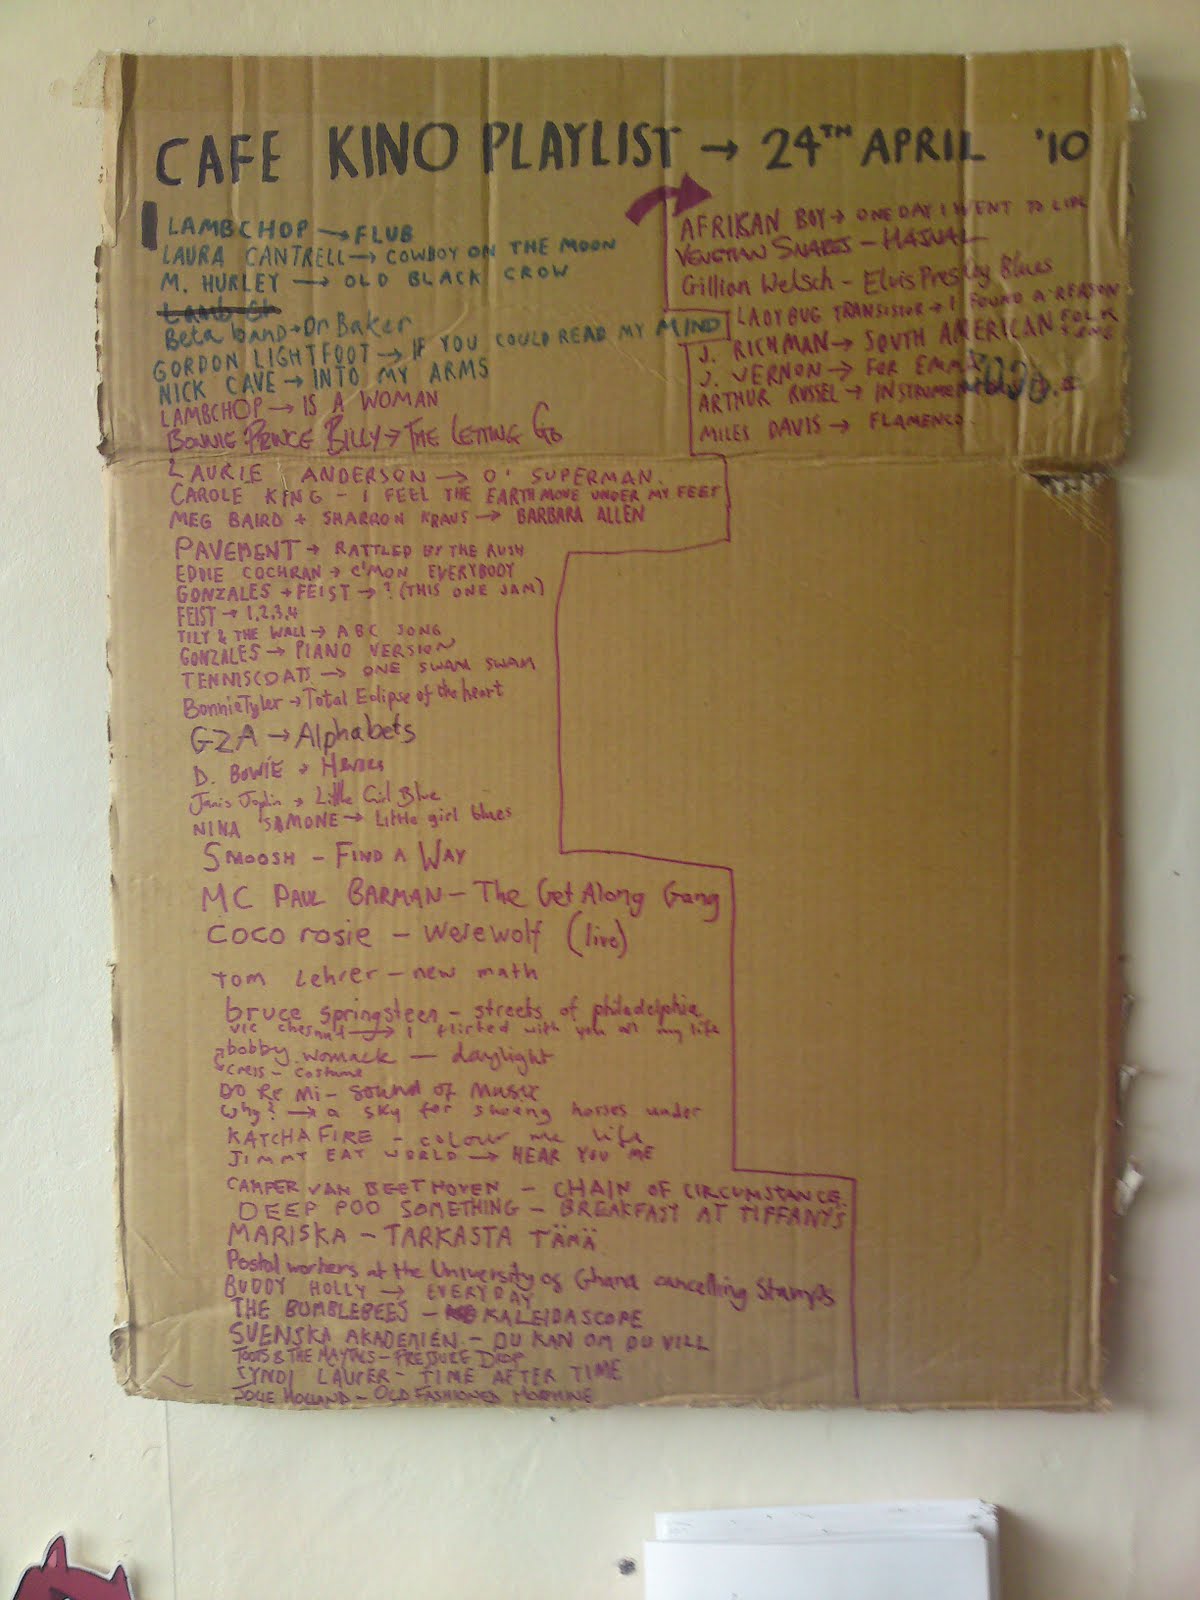 CAFE KINO PLAYLIST → 24TH APRIL '10
LAMBCHOP → FLUB
LAURA CANTRELL → COWBOY ON THE MOON
M. HURLEY → OLD BLACK CROW
Beta band → Dr Baker
GORDON LIGHTFOOT → IF YOU COULD READ MY MIND
NICK CAVE → INTO MY ARMS
LAMBCHOP → IS A WOMAN
BONNIE PRINCE BILLY → THE LETTING GO
LAURIE ANDERSON → O' SUPERMAN.
CAROLE KING - I FEEL THE EARTH MOVE UNDER MY FEET
MEG BAIRD + SHARRON KRAUS → BARBARA ALLEN
PAVEMENT → RATTLED BY THE RUSH
EDDIE COCHRAN → C'MON EVERYBODY
GONZALES + FEIST → ? (THIS ONE JAM)
FEIST → 1,2,3,4
TILY & THE WALL → ABC SONG
GONZALES → PIANO VERSION
TENNISCOATS → ONE SWAM SWAM
Bonnie Tyler → Total Eclipse of the heart
GZA → Alphabets
D. BOWIE →
Janis Joplin → Little Girl Blue
NINA SIMONE → Little girl blues
SMOOSH - FIND A WAY
MC PAUL BARMAN - The Get Along Gang
COCO rosie - werewolf (live)
tom Lehrer - new math
bruce springsteen - streets of philadelphia
vic chesnut → I flirted with you all my life
bobby womack - daylight
- costume
DO Re Mi - Sound of Music
why? → a sky for shoeing horses under
KATCHAFIRE - colour me life
JIMMY EAT WORLD → HEAR YOU ME
CAMPER VAN BEETHOVEN - CHAIN OF CIRCUMSTANCE.
DEEP POO SOMETHING - BREAKFAST AT TIFFANY'S
MARISKA - TARKASTA TÄMÄ
Postal workers at the University of Ghana cancelling Stamps
BUDDY HOLLY → EVERYDAY
THE BUMBLEBEES - KALEIDASCOPE
SVENSKA AKADEMIEN - DU KAN OM DU VILL
TOOTS & THE MAYTALS - PRESSURE DROP
CYNDI LAUPER - TIME AFTER TIME
JOLIE HOLLAND - OLD FASHIONED MORPHINE
AFRIKAN BOY → ONE DAY I WENT TO LIDL
VENETIAN SNARES - HAJNAL
Gillian Welsch - Elvis Presley Blues
LADYBUG TRANSISTOR → I FOUND A REASON
J. RICHMAN → SOUTH AMERICAN FOLK SONG
J. VERNON → FOR EMMA
ARTHUR RUSSEL →
MILES DAVIS → FLAMENCO